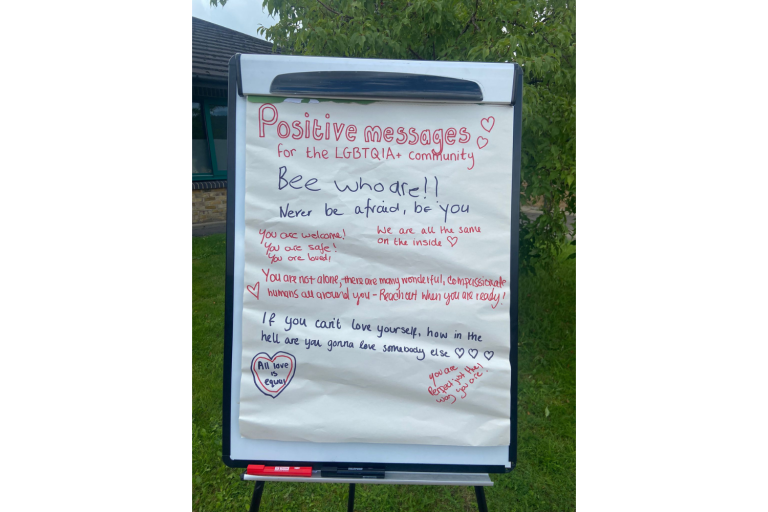 Positive messages
for the LGBTQIA+ community
Bee who are!!
Never be afraid, be you
You are welcome!
You are safe!
You are loved!
We are all the same
on the inside
You are not alone, there are many wonderful, compassionate
humans all around you - Reach out when you are ready!
If you can't love yourself, how in the
hell are you gonna love somebody else
All love
is
equal
you are
Perfect just the
way you are!